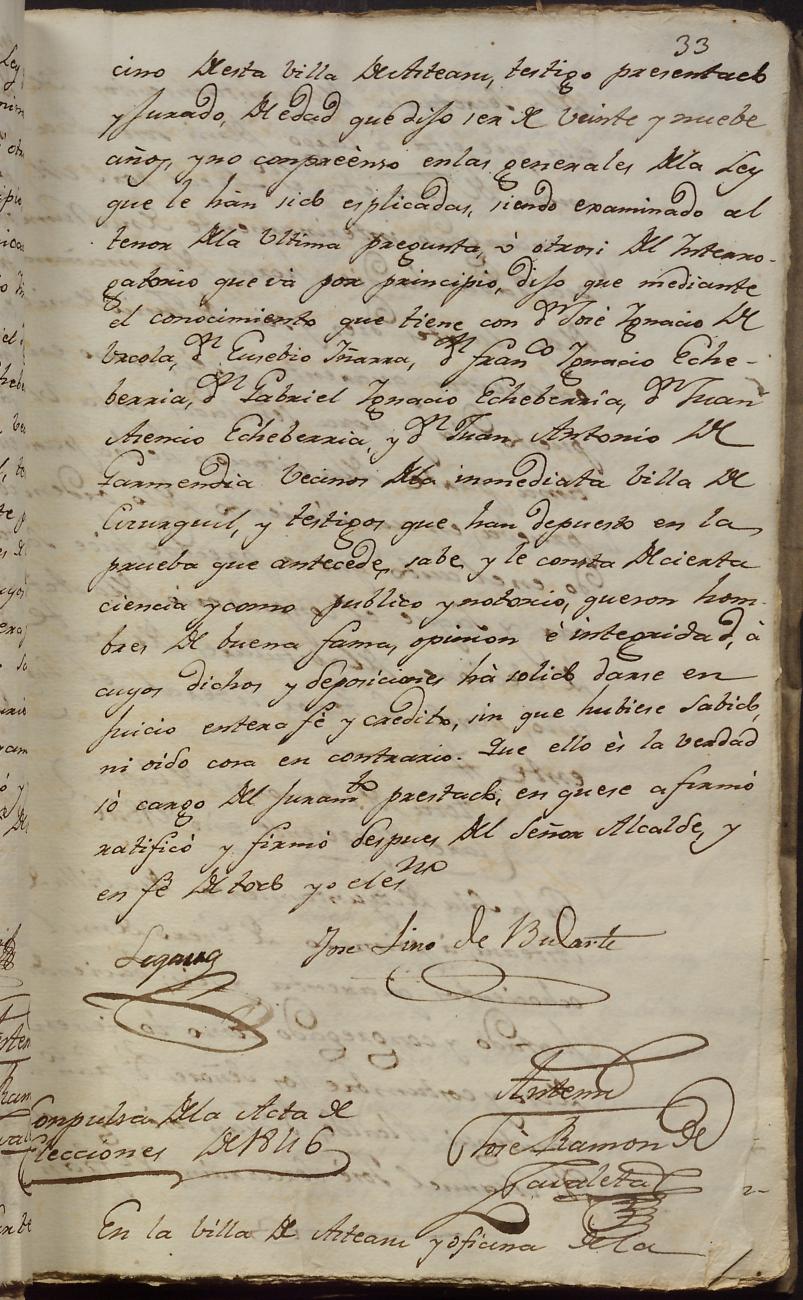 33
cino de esta villa de Asteasu, testigo presentado
y jurado, de edad que dijo ser de veinte y nuebe
años, y no conpreénso en las generales de la Ley
que le hán sido esplicadas, siendo examinado al
tenor de la última pregunta, ú otrosi del Interro-
gatorio que vá por principio, dijo que mediante
el conocimiento que tiene con dn José Ygnacio de
Urcola, dn Eusebio Yñarra, dn Franco Ygnacio Eche-
berria, dn Gabriel Ygnacio Echeberria, dn Juan
Asencio Echeberria, y dn Juan Antonio de
Garmendia Vecinos de la inmediata villa de
Cizurquil, y testigos que han depuesto en la
prueba que antecede, sabe y le consta de cierta
ciencia y como publico y notorio, que son hom-
bres de buena fama, opinion é integridad, á
cuyos dichos y deposiciones há solido darse en
Juicio entera fé y credito, sin que hubiese sabido,
ni oido cosa en contrario. Que ello és la verdad
só cargo del juramto prestado, en que se afirmó
ratificó y firmó despues del Señor Alcalde, y
en fé de todo yo el esno
José Lino de
Antemi
José Ramon de
Zavaleta
Conpulsa de la Acta de
Elecciones de 1846
En la villa de Asteasu y oficina de la